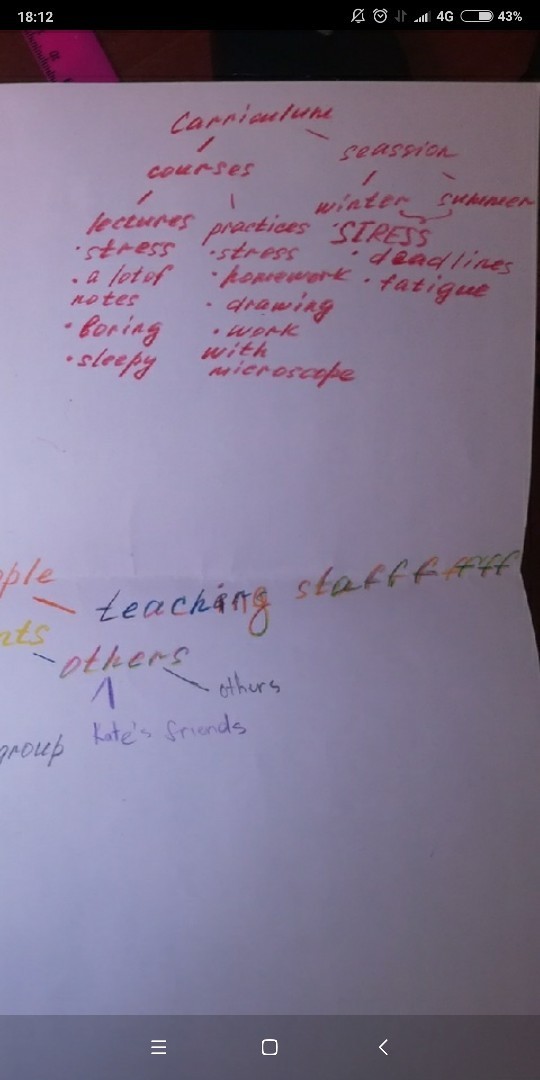 18:12
4G
43%
Carriculum
courses
seassion
lectures
practices
winter
summer
• stress
• a lot of
notes
• boring
• sleepy
• stress
• homework
• drawing
• work
with
microscope
STRESS
• deadlines
• fatigue
ople
teaching stafffffff
nts
others
others
Kate's friends
group